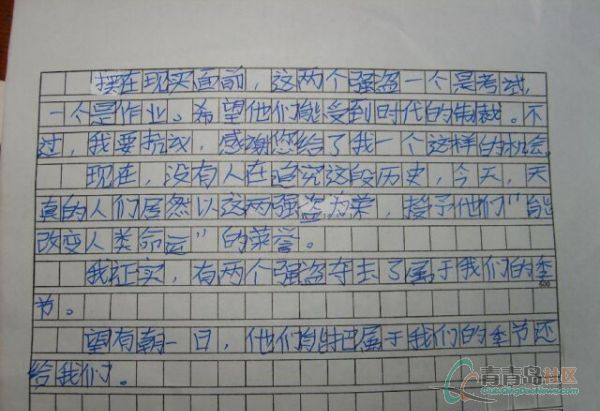 摆在现实面前，这两个强盗一个是考试，
一个是作业。希望他们能受到时代的制裁。不
过，我要抗议，感谢您给了我一个这样的机会。
现在，没有人在追究这段历史，今天，天
真的人们居然以这两强盗为荣，授予他们“能
改变人类命运”的荣誉。
我证实，有两个强盗夺去了属于我们的季
节。
600
望有朝一日，他们能把属于我们的季节还
给我们。
青青岛社区